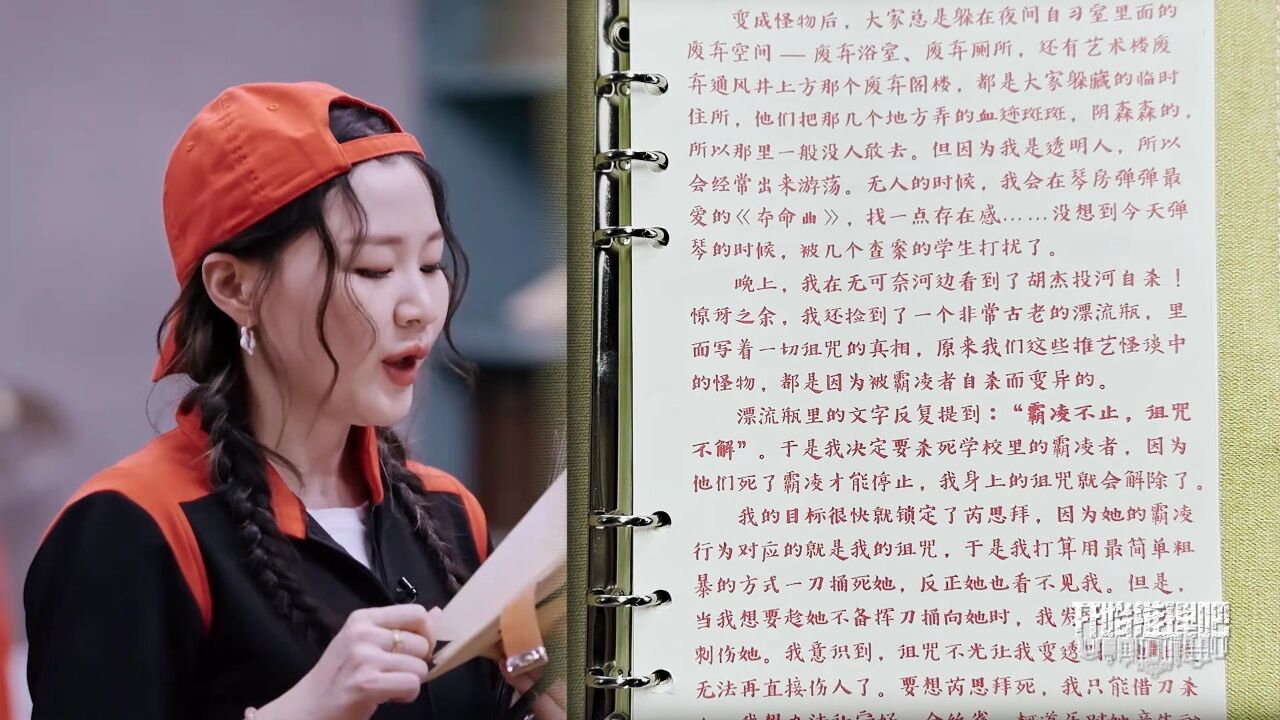 变成怪物后，大家总是躲在夜间自习室里面的
废弃空间 — 废弃浴室、废弃厕所，还有艺术楼废
弃通风井上方那个废弃阁楼，都是大家躲藏的临时
住所，他们把那几个地方弄的血迹斑斑，阴森森的，
所以那里一般没人敢去。但因为我是透明人，所以
会经常出来游荡。无人的时候 我会在琴房弹弹最
爱的《夺命曲》，找一点存在感……没想到今天弹
琴的时候，被几个查案的学生打扰了。
晚上，我在无可奈河边看到 杰投河自杀！
惊讶之余 我还捡到了一个非常古老的漂流瓶，里
面写着一切诅咒的真相，原来我们这些推艺怪谈中
的怪物，都是因为被霸凌者自杀而变异的。
漂流瓶里的文字反复提到：“霸凌不止，诅咒
不解”。于是我决定要杀死学校里的霸凌者，因为
他们死了霸凌才能停止，我身上的诅咒就会解除了
我的目标很快就锁定了芮思拜 因为她的霸凌
行为对应的就是我的诅咒，于是我打算用最简单粗
暴的方式一刀捅死她，反正她也看不见我。但是，
当我想要趁她不备挥刀捅向她时，我发
刺伤她。我意识到，诅咒不光让我变透
无法再直接伤人了。要想芮思拜死，我只能借刀杀
开始推理吧